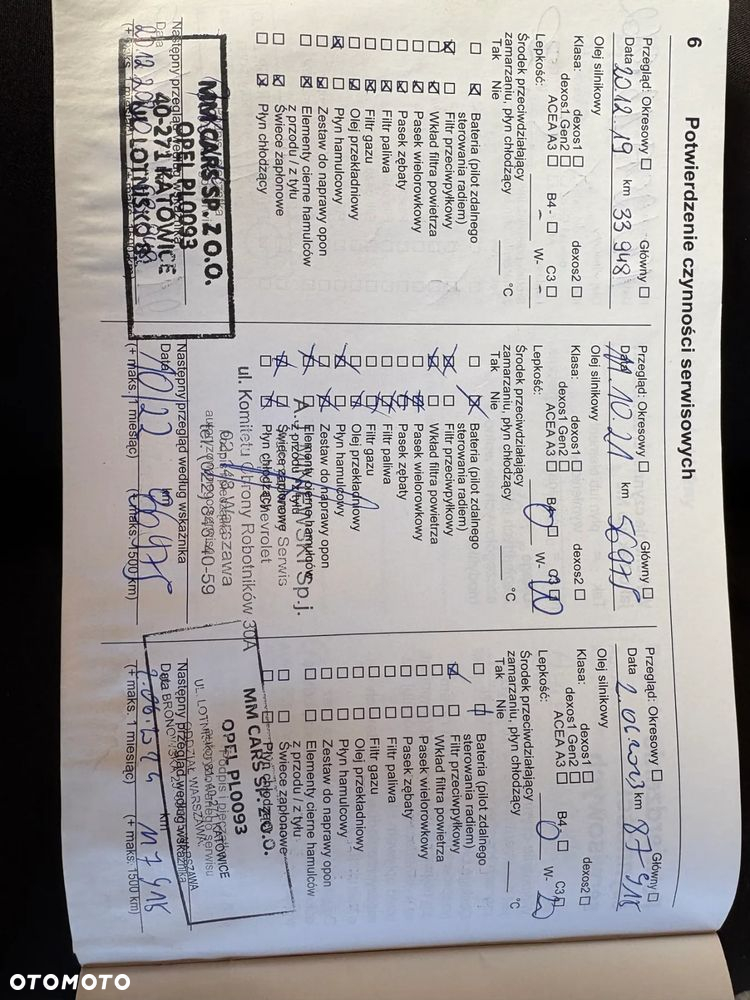 6 Potwierdzenie czynności serwisowych
Przegląd: Okresowy ☐ Główny ☐
Data 2012.19 km 33 948
Olej silnikowy
Klasa: dexos1 ☐ dexos2 ☐
dexos1 Gen2 ☐
ACEA A3 ☐ B4 - ☐ C3 ☐
Lepkość: W-
Środek przeciwdziałający
zamarzaniu, płyn chłodzący °C
Tak Nie
☐ ☒ Bateria (pilot zdalnego
sterowania radiem)
☒ ☐ Filtr przeciwpyłkowy
☐ ☒ Wkład filtra powietrza
☐ ☒ Pasek wielorowkowy
☐ ☒ Pasek zębaty
☐ ☒ Filtr paliwa
☐ ☒ Filtr gazu
☐ ☒ Olej przekładniowy
☒ ☐ Płyn hamulcowy
☐ ☒ Zestaw do naprawy opon
☐ ☒ Elementy cierne hamulców
z przodu / z tyłu
☐ ☒ Świece zapłonowe
☐ ☒ Płyn chłodzący
MM CARS SP. Z O.O.
OPEL PL0093
40-271 KATOWICE
Następny przegląd według wskaźnika
Data
(+ maks. 1 miesiąc)
Przegląd: Okresowy ☐ Główny ☐
Data 11.10.21 km 56975
Olej silnikowy
Klasa: dexos1 ☐ dexos2 ☐
dexos1 Gen2 ☐
ACEA A3 ☐ B4 - ☐ C3 ☐
Lepkość: 0 W- 20
Środek przeciwdziałający
zamarzaniu, płyn chłodzący °C
Tak Nie
Bateria (pilot zdalnego
sterowania radiem)
Filtr przeciwpyłkowy
Wkład filtra powietrza
Pasek wielorowkowy
Pasek zębaty
Filtr paliwa
Filtr gazu
Olej przekładniowy
Płyn hamulcowy
Zestaw do naprawy opon
Elementy cierne hamulców
z przodu / z tyłu
Świece zapłonowe
Płyn chłodzący
Sp.j.
Serwis
Chevrolet
ul. Komitetu Obrony Robotników 30A
02-148 Warszawa
Następny przegląd według wskaźnika
Data 10/22 km
(+ maks. 1 miesiąc) (+ maks. 1500 km)
Przegląd: Okresowy ☐ Główny ☐
Data 2.06.2023 km 87918
Olej silnikowy
Klasa: dexos1 ☐ dexos2 ☐
dexos1 Gen2 ☐
ACEA A3 ☐ B4 - ☐ C3 ☐
Lepkość: 0 W- 20
Środek przeciwdziałający
zamarzaniu, płyn chłodzący °C
Tak Nie
Bateria (pilot zdalnego
sterowania radiem)
☒ ☐ Filtr przeciwpyłkowy
☐ ☐ Wkład filtra powietrza
☐ ☐ Pasek wielorowkowy
☐ ☐ Pasek zębaty
☐ ☐ Filtr paliwa
☐ ☐ Filtr gazu
☐ ☐ Olej przekładniowy
☐ ☐ Płyn hamulcowy
☐ ☐ Zestaw do naprawy opon
☐ ☐ Elementy cierne hamulców
z przodu / z tyłu
☐ ☐ Świece zapłonowe
☐ ☐ Płyn chłodzący
MM CARS SP. Z O.O.
OPEL PL0093
KATOWICE
Następny przegląd według wskaźnika
Data km 117918
(+ maks. 1 miesiąc) (+ maks. 1500 km)
OTOMOTO